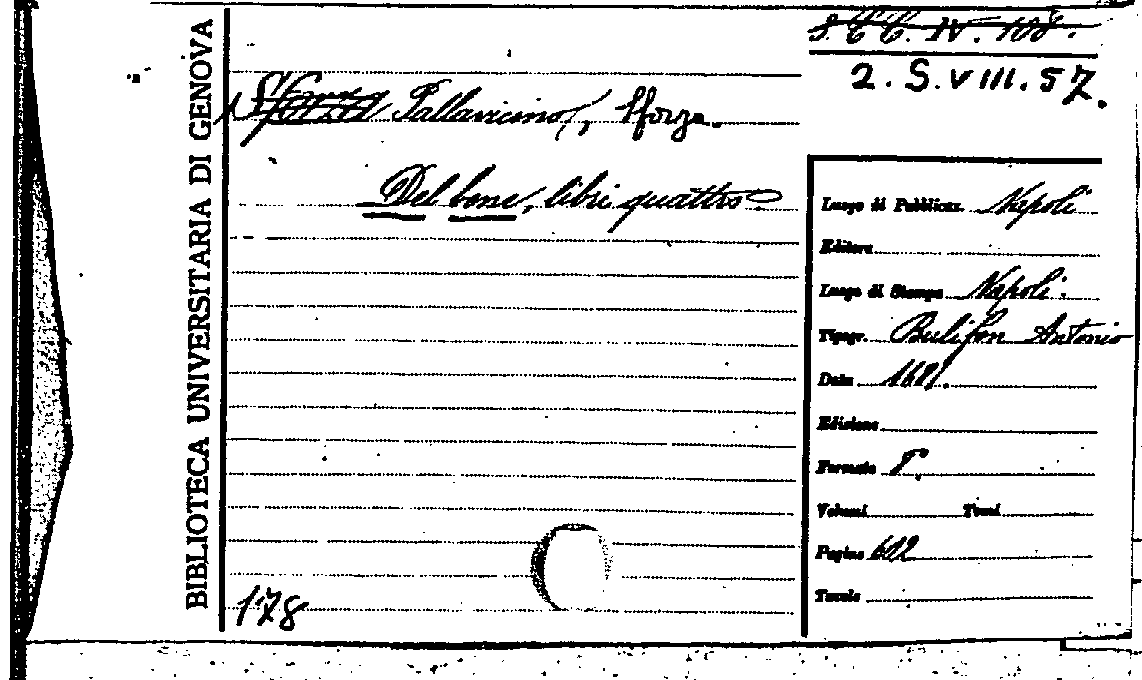 BIBLIOTECA UNIVERSITARIA DI GENOVA
S. C C. IV. 108.
2. S. VIII. 57.
Sforza Pallavicino, Sforza.
Del bene, libri quattro.
Luogo di Pubblicaz. Napoli
Editore
Luogo di Stampa Napoli.
Tipogr. Bulifon Antonio
Data 1681.
Edizione
Formato 8°.
Volumi Tomi
Pagine 602
Tavole
178